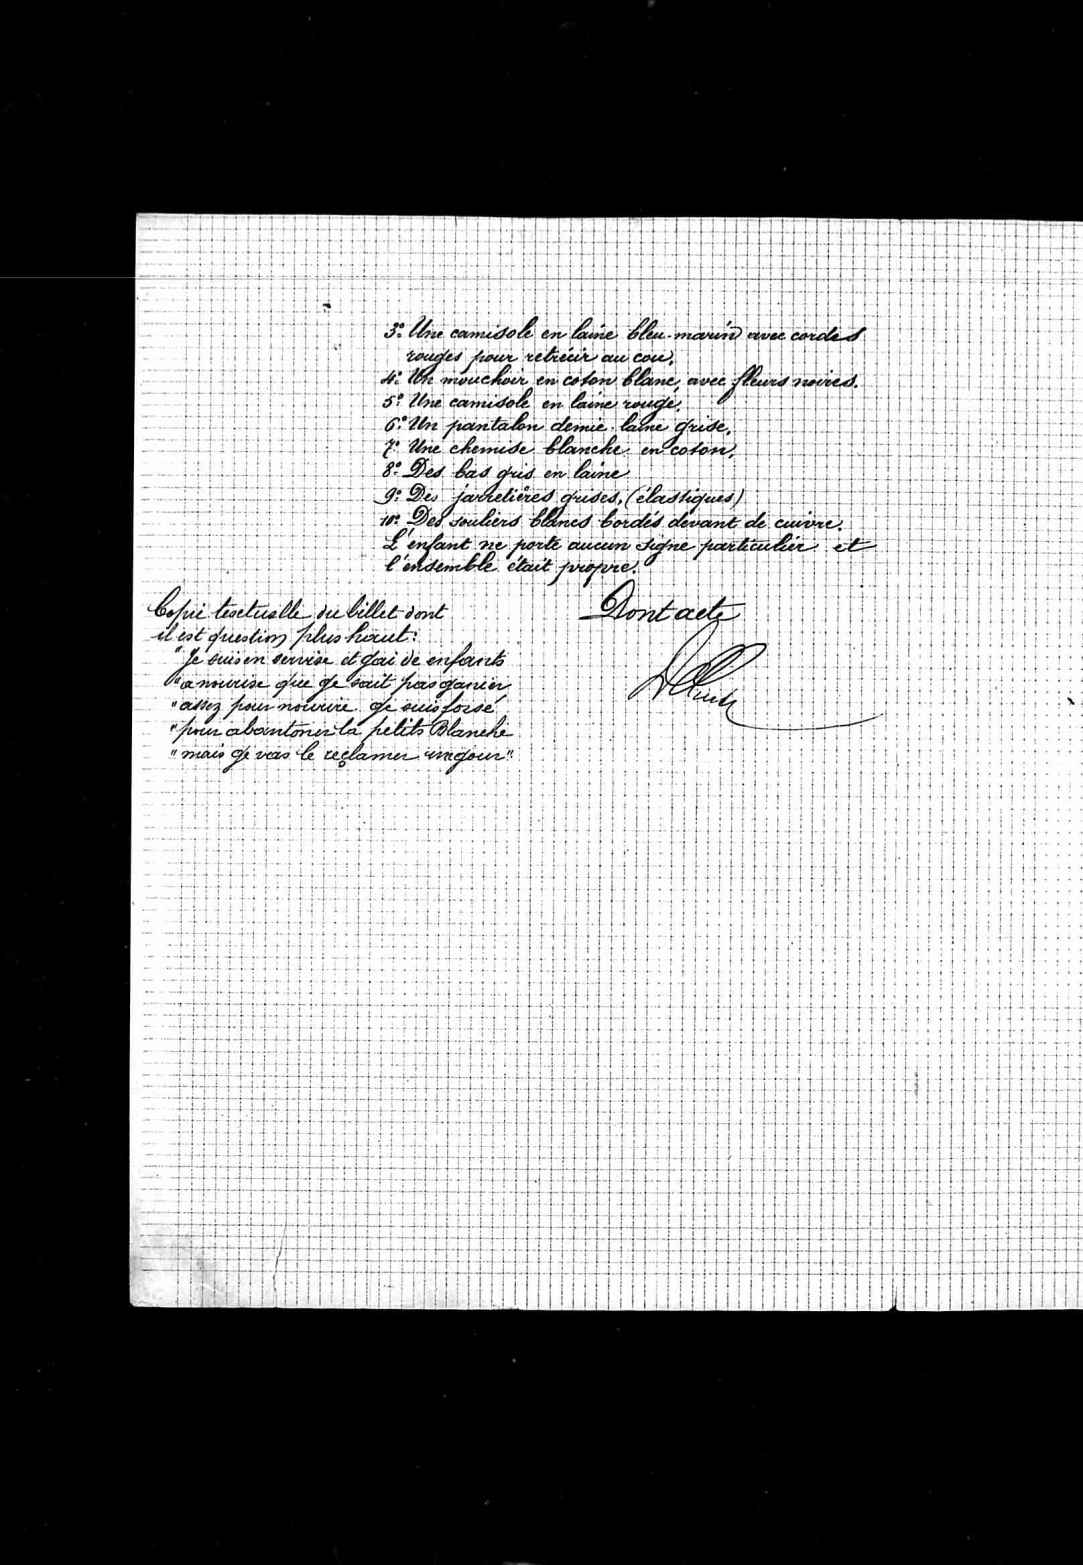 3º. Une camisole en laine bleu-marin avec cordes
rouges pour retrécir au cou.
4º. Un mouchoir en coton blanc, avec fleurs noires.
5º. Une camisole en laine rouge.
6º. Un pantalon demie-laine grise.
7º. Une chemise blanche en coton.
8º. Des bas gris en laine
9º. Des jarretières grises, (élastiques)
10º. Des souliers blancs bordés devant de cuivre.
L'enfant ne porte aucun signe particulier et
l'ensemble était propre.
Dont acte
Copie textuelle du billet dont
il est question plus haut:
"Je suis en servise et gai de enfants
"a nourise que ge sait pas ganier
"assez pour nourire ge suis forsé
"pour abantoner la petits Blanche
"mais ge vais le reçlamer un gour"